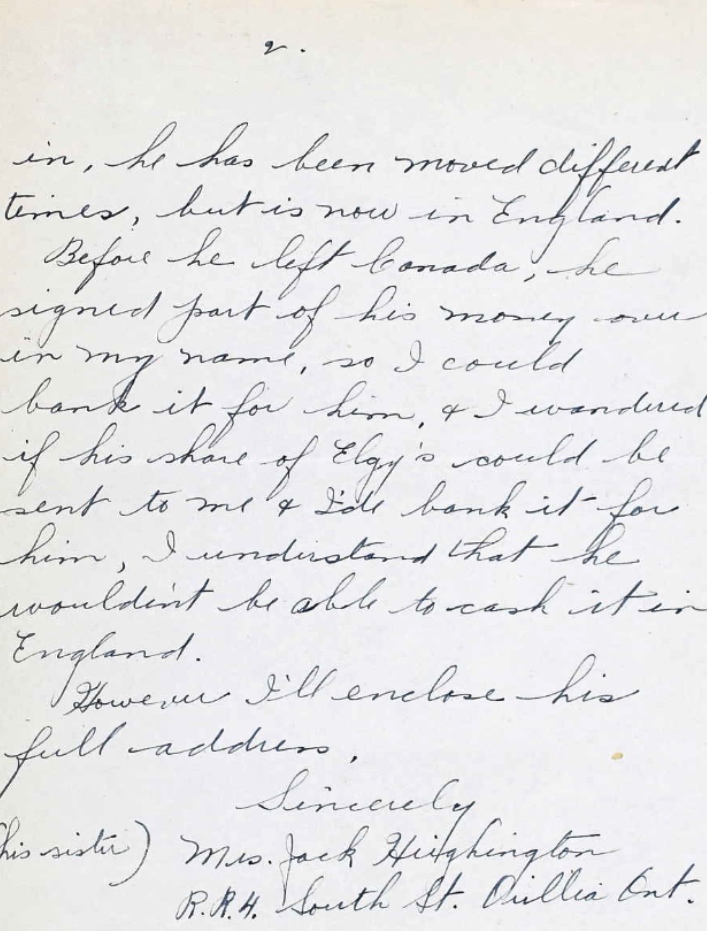 2.
in, he has been moved different
times, but is now in England.
Before he left Canada, he
signed part of his money over
in my name, so I could
bank it for him, & I wandered
if his share of Elgy's could be
sent to me & I'de bank it for
him, I understand that he
wouldin't be able to cash it in
England.
However I'll enclose his
full address,
Sincerely
his sister) Mrs. Jack Heighington
R.R.4. South St. Orillia Ont.